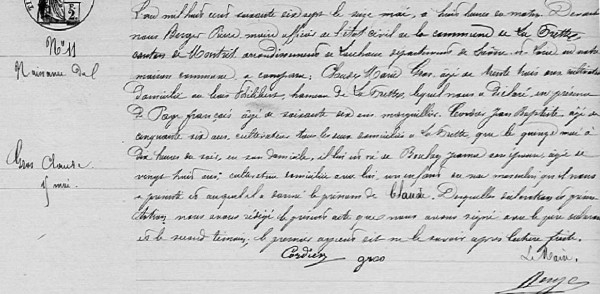 N° 11
Naissance de
Gros Claude
15 mai
L'an mil huit cent soixante dix sept le seize mai, à huit heures du matin Devant
nous Berger Pierre maire officier de l'état civil de la commune de La Frette
canton de Montret arrondissement de Louhans département de Saône et Loire en notre
maison commune, a comparu: Claude Marie Gros, âgé de trente trois ans cultivateur
domicilié au hameau de La Frette, lequel nous a déclaré, en présence
de Page français âgé de soixante six ans marguillier, Cordier Jean Baptiste, âgé de
cinquante six ans cultivateur tous les deux domiciliés à La Frette, que le quinze mai à
dix heures du soir, en son domicile, il lui est né de Bochey Jeanne son épouse, âgée de
vingt huit ans cultivatrice domiciliée avec lui un enfant du sexe masculin qu'il nous
a présenté et auquel il a donné le prénom de Claude. Desquelles déclaration et présen
tation, nous avons rédigé le présent acte que nous avons signé avec le père déclarant
et le second témoin; le premier ayant dit ne le savoir après lecture faite.
Cordier gros Le Maire
Berger